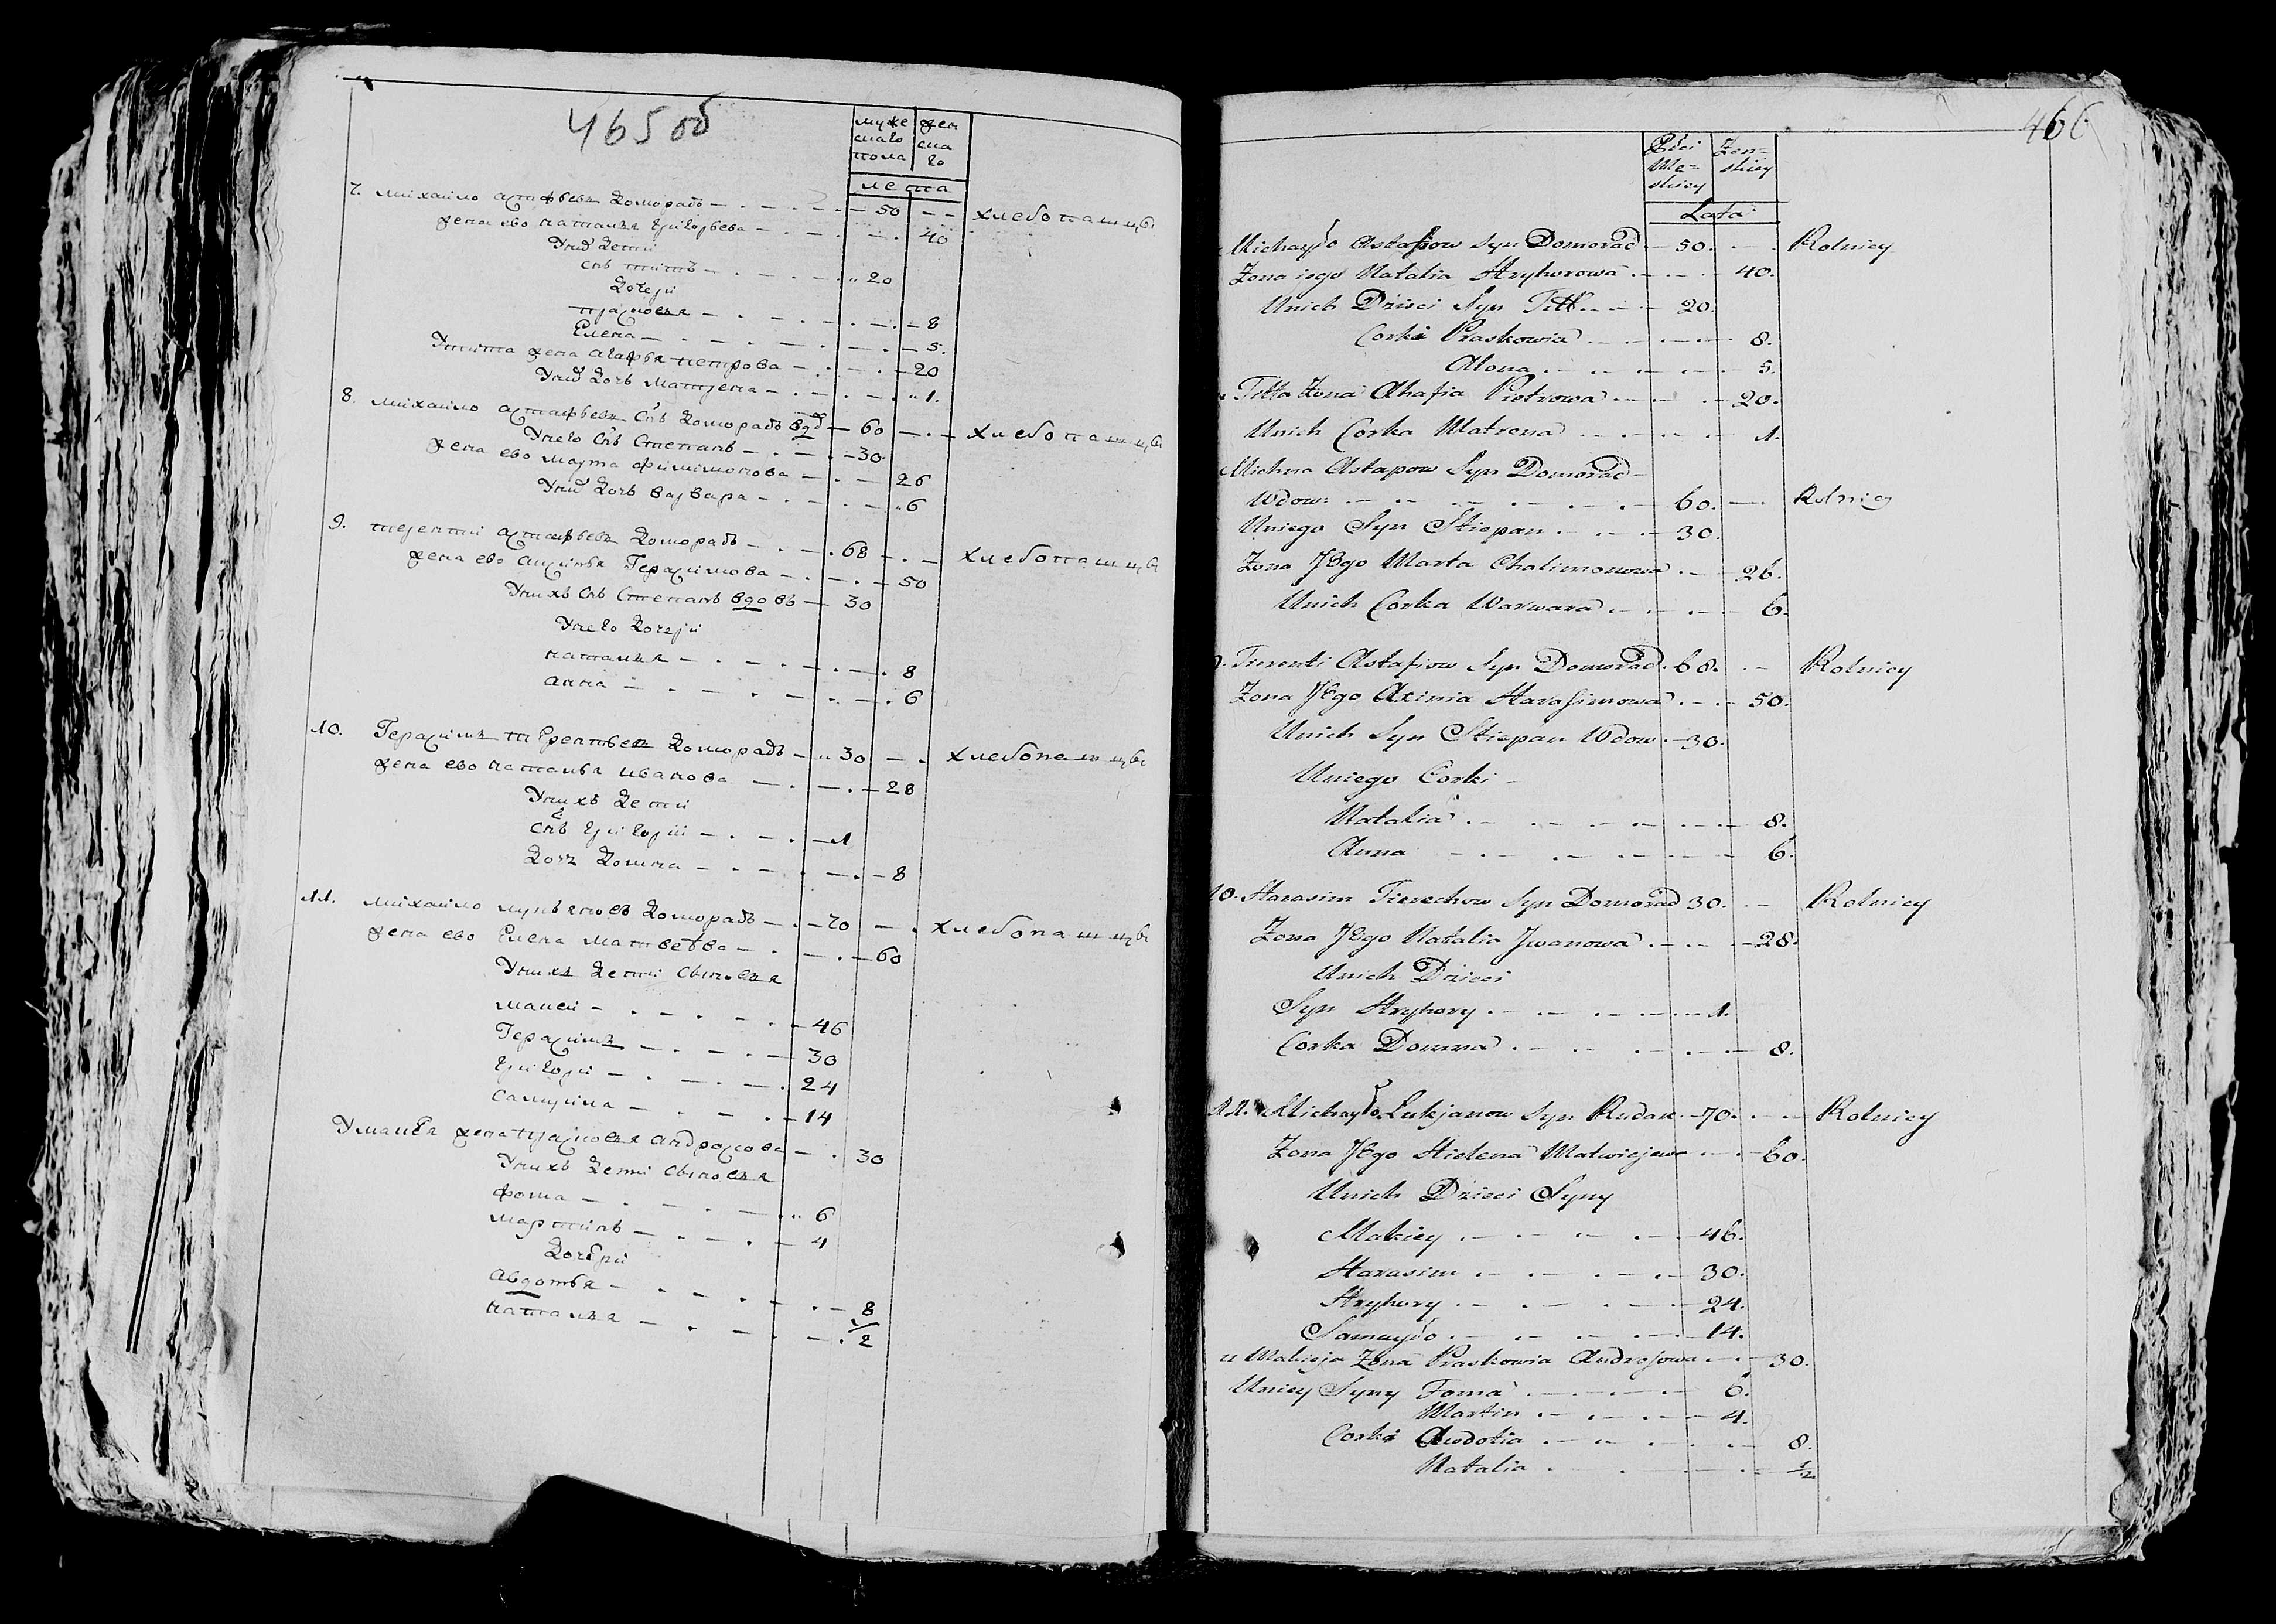 465 об
муже
скаго
пола
жен
ска
го
лета
7. михайло астафьевъ домарадъ — 50 — хлебопашцы
жена ево наталья григорьева — 40
Уних дети
снъ титъ — 20
дочери
прасковья — 8
Елена — 5.
Утита жена агафья петрова — 20
Уних дочь матрена — 1.
8. михайло астафьевъ снъ домарадъ вдо — 60 — хлебопашцы
Унего снъ степанъ — 30
жена ево марта филимонова — 26
Уних дочь варвара — 6
9. терентий астафьевъ домарадъ — 68 — хлебопашцы
жена ево аксинья Герасимова — 50
Унихъ снъ степанъ вдовъ — 30
Унего дочери
наталья — 8
анна — 6
10. Герасимъ терентьевъ домарадъ — 30 — хлебопашцы
жена ево наталья иванова — 28
Унихъ дети
снъ григорий — 1
дочъ домна — 8
11. михайло лукьяновъ домарадъ — 70 — хлебопашцы
жена ево Елена матвеева — 60
Унихъ дети сыновья
макей — 46
Герасимъ — 30
григори — 24
самуйла — 14
Умакея жена прасковья андросова — 30
Унихъ дети сыновья
фома — 6
мартинъ — 4
дочери
авдотья — 8
наталья — 1/2
466
Płci
Męz-
skiey
Żen-
skiey
Lata
Michayło Astafiow Syn Domorad — 50. — Rolnicy
Zona iego Natalia Hryhorowa — 40.
Unich Dzieci Syn Titt — 20.
Corki Praskowia — 8.
Alona — 5.
Titta Zona Ahafia Pietrowa — 20.
Unich Corka Matrena — 1.
Michna Astapow Syn Domorad —
Wdow: — 60. — Rolnicy
Uniego Syn Stiepan — 30.
Zona Jego Marta Chalimonowa — 26.
Unich Corka Warwara — 6.
9. Tierenti Astafiow Syn Domorad. 68. — Rolnicy
Zona Jego Axinia Harasimowa — 50.
Unich Syn Stiepan Wdow — 30.
Uniego Corki —
Natalia — 8.
Anna — 6.
10. Harasim Tierechow Syn Domorad 30. — Rolnicy
Zona Jego Natalia Jwanowa — 28.
Unich Dzieci
Syn Hryhory — 1.
Corka Domna — 8.
11. Michayło Lukjanow Syn Rudak — 70. — Rolnicy
Zona Jego Hielena Matwiejewa — 60.
Unich Dzieci Syny
Makiey — 46.
Harasim — 30.
Hryhory — 24.
Samuyło — 14.
u Makieja Zona Praskowia Androsowa — 30.
Uniey Syny Foma — 6.
Martin — 4.
Corki Awdotia — 8.
Natalia — 1/2